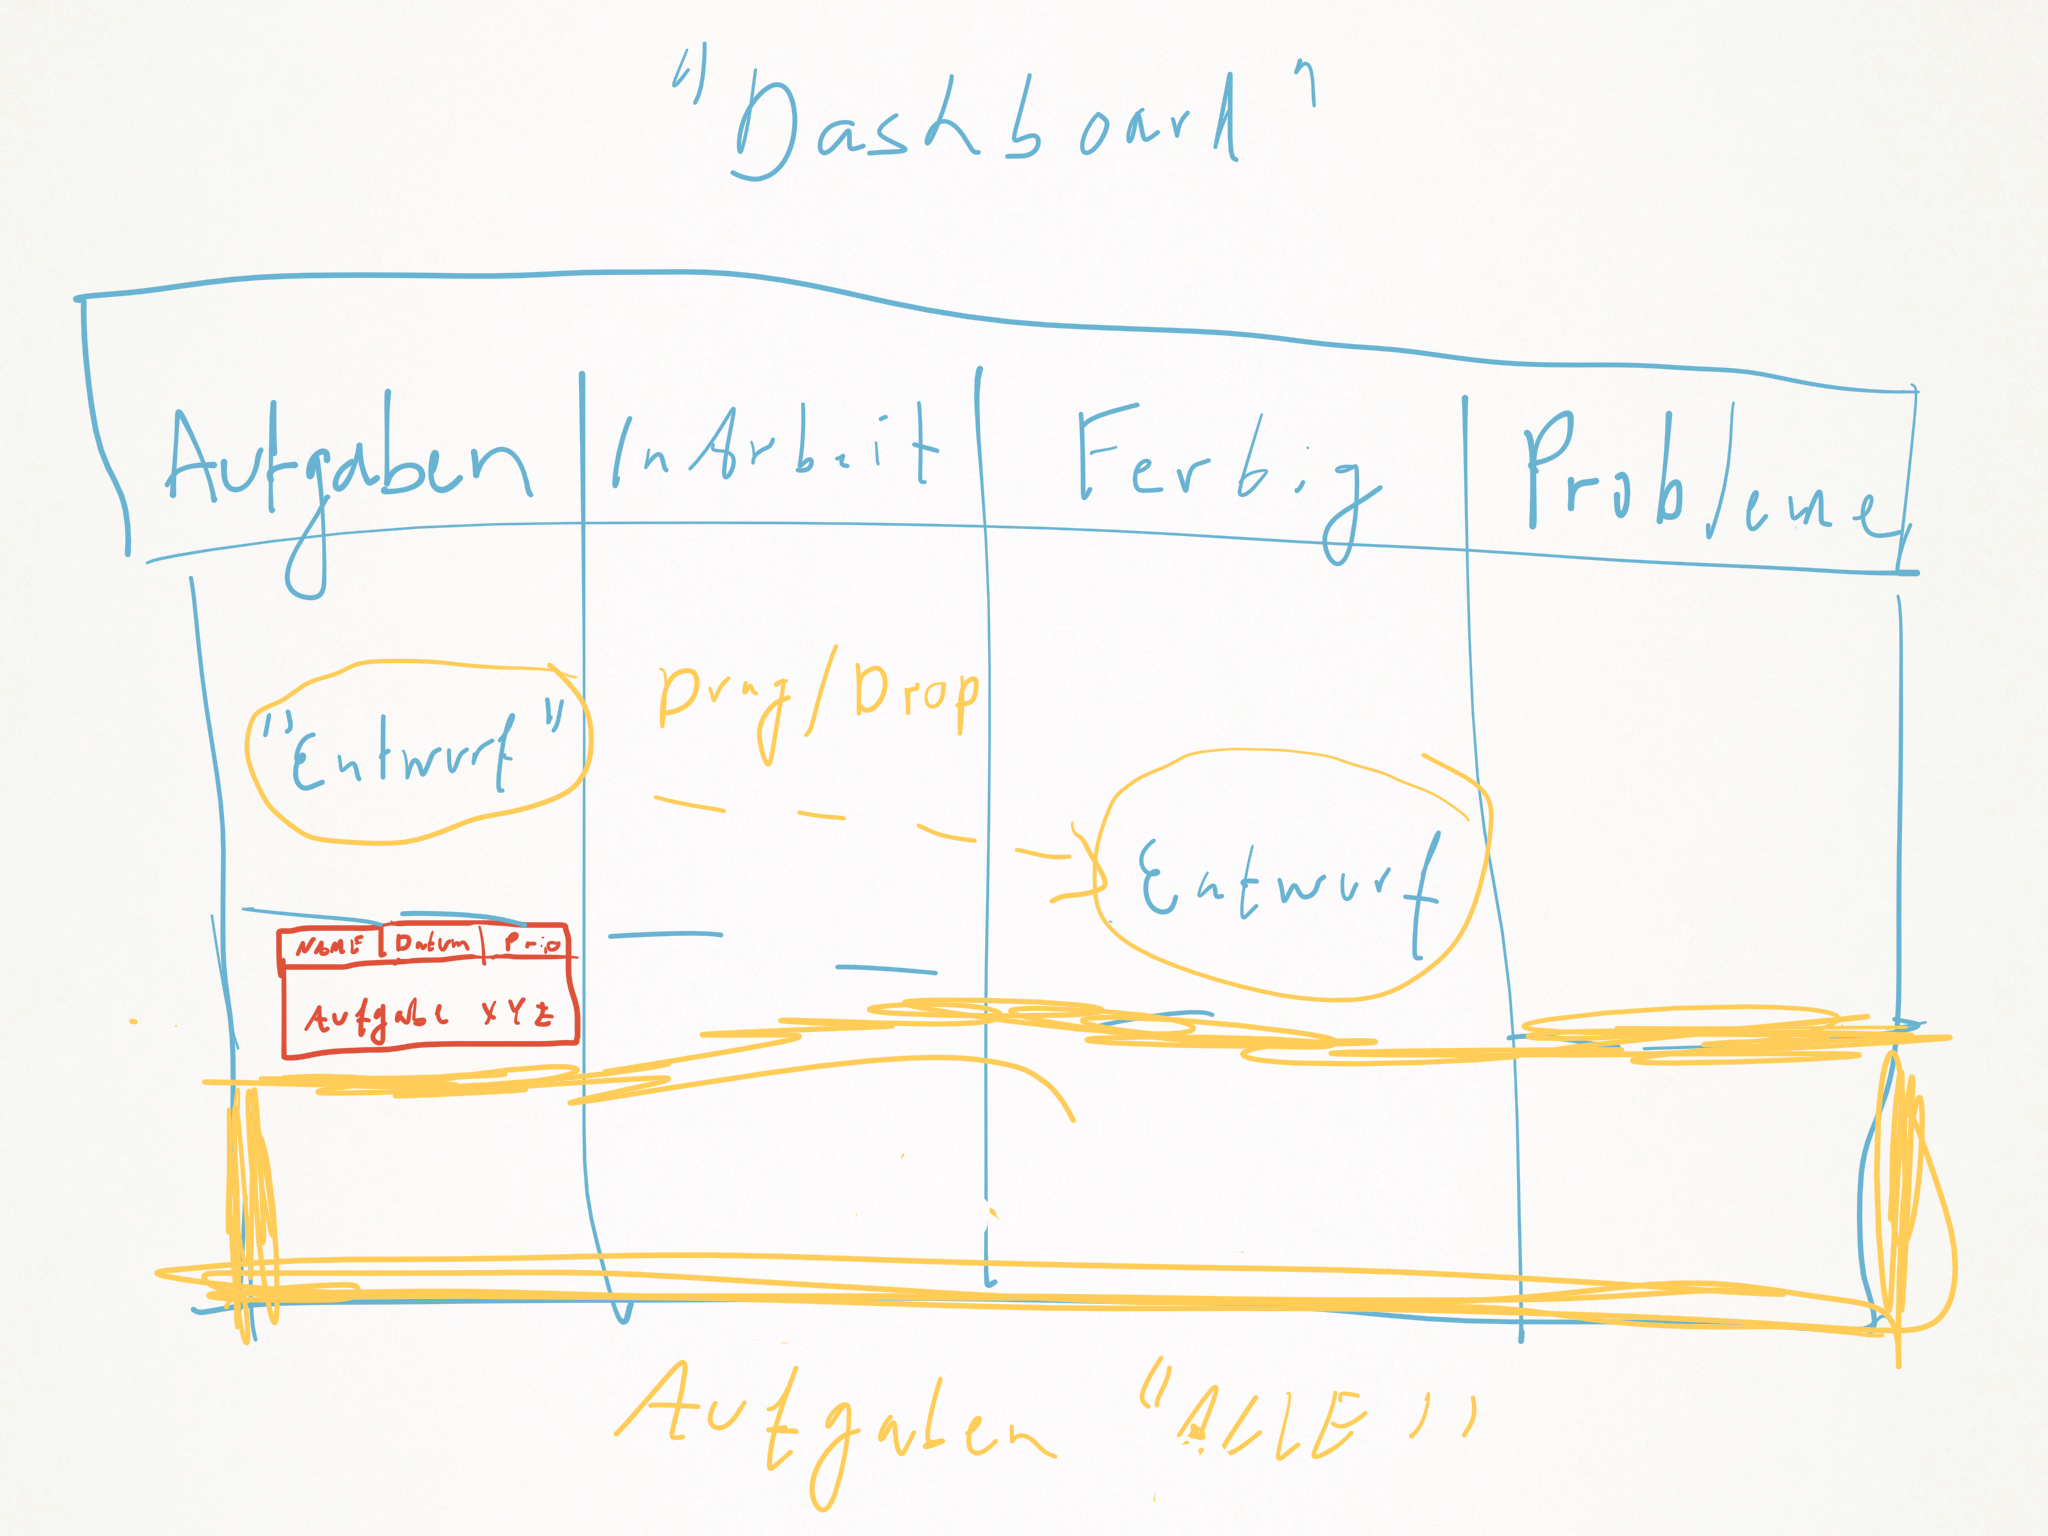 "Dashboard"
Aufgaben In Arbeit Fertig Probleme
"Entwurf" Drag/Drop
Entwurf
NAME Datum Prio
Aufgabe XYZ
Aufgaben "ALLE"